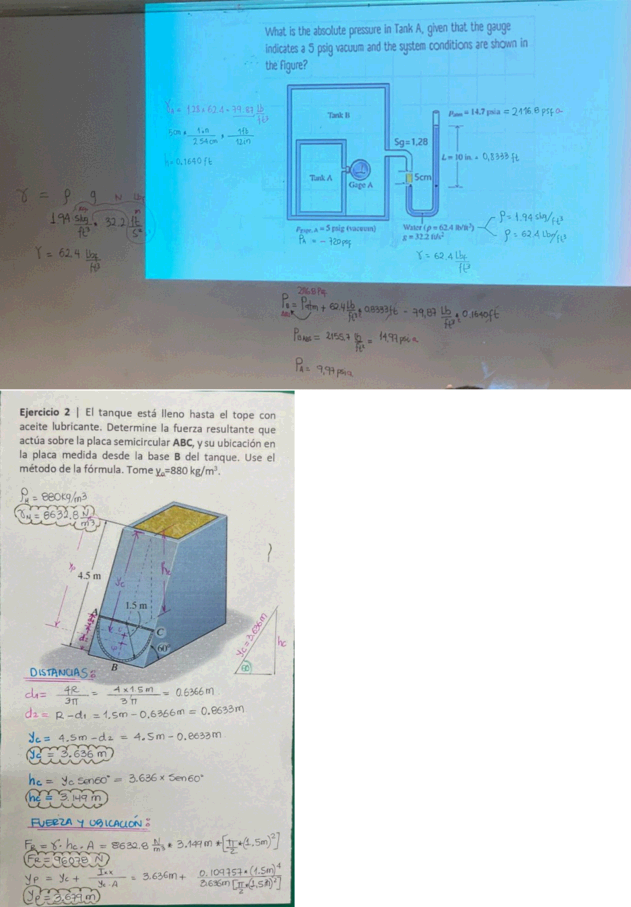 What is the absolute pressure in Tank A, given that the gauge
indicates a 5 psig vacuum and the system conditions are shown in
the figure?
γ = 1.28 × 62.4 = 79.87 lb/ft³
5cm * 1in/2.54cm * 1ft/12in
h = 0,1640 ft
Tank B
Tank A
Gage A
Sg=1,28
5cm
Patm = 14.7 psia = 2116.8 psfa
L = 10 in. = 0,8333 ft
Pgage, A = 5 psig (vacuum)
PA = - 720 psf
Water (ρ = 62.4 lb/ft³)
g = 32.2 ft/s²
ρ = 1.94 slug/ft³
ρ = 62.4 lbm/ft³
γ = 62.4 lbf/ft³
γ = ρ g
1.94 slug/ft³ * 32.2 ft/s²
γ = 62.4 lbf/ft³
2116.8 psf
PB = Patm + 62.4 lb/ft³ * 0.8333ft - 79,87 lb/ft³ * 0,1640ft
PB ABS = 2155.7 lb/ft² = 14.97 psia
PA = 9,97 psia
Ejercicio 2 | El tanque está lleno hasta el tope con
aceite lubricante. Determine la fuerza resultante que
actúa sobre la placa semicircular ABC, y su ubicación en
la placa medida desde la base B del tanque. Use el
método de la fórmula. Tome γo=880 kg/m³.
ρH = 880kg/m3
γH = 8632.8 N/m3
yc
hc
4.5 m
1.5 m
A
C
60°
B
yc = 3.636m
hc
60
DISTANCIAS:
d1 = 4R/3π = 4×1.5m/3π = 0.6366m
d2 = R-d1 = 1.5m - 0.6366m = 0.8633m
yc = 4.5m - d2 = 4.5m - 0.8633m
yc = 3.636 m
hc = yc sen60° = 3.636 × sen60°
hc = 3.149 m
FUERZA Y UBICACIÓN:
FR = γ · hc · A = 8632.8 N/m³ * 3.149m * [π/2 * (1,5m)²]
FR = 96078 N
yp = yc + Ixx/yc·A = 3.636m + 0.109757*(1.5m)⁴/3.636m [π/2*(1,5m)²]
yp = 3.679 m